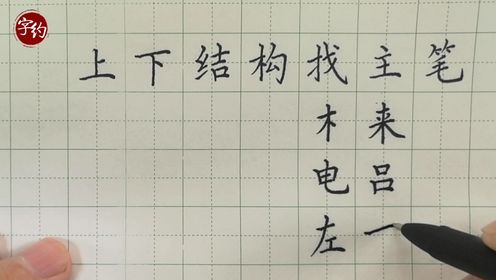 字约
上下结构找主笔
木来
电吕
左一